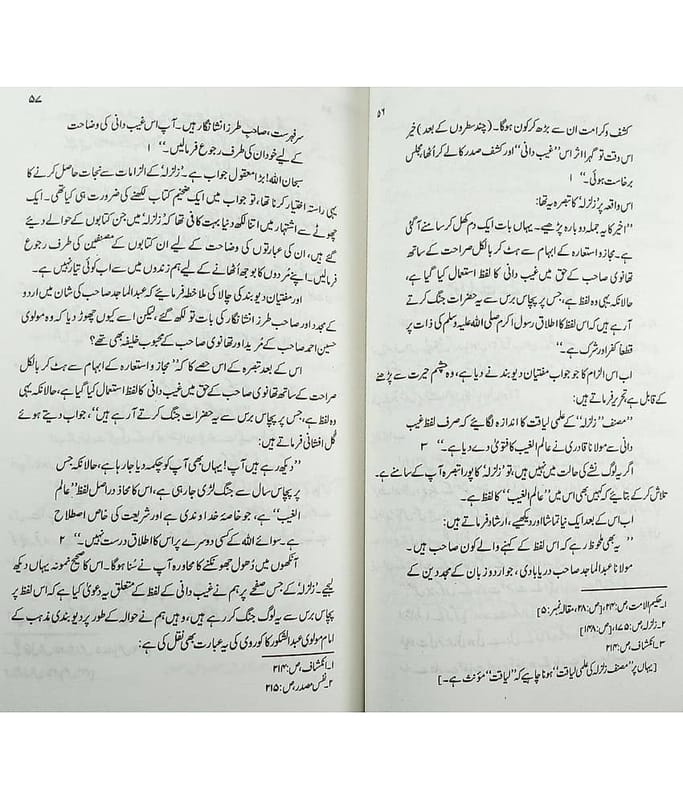 ۵۶
کشف و کرامت ان سے بڑھ کر کون ہوگا۔ (چند سطروں کے بعد) خیر
اس وقت تو گہرا اثر اس ”غیب دانی“ اور کشف صدر کا لے کر اٹھا، مجلس
برخاست ہوئی۔“ ۱
اس واقعہ پر زلزلہ کا تبصرہ یہ تھا:
”اخیر کا یہ جملہ دوبارہ پڑھیے۔ یہاں بات ایک دم کھل کر سامنے آ گئی
ہے۔ مجاز و استعارہ کے ابہام سے ہٹ کر بالکل صراحت کے ساتھ
تھانوی صاحب کے حق میں غیب دانی کا لفظ استعمال کیا گیا ہے،
حالانکہ یہی وہ لفظ ہے، جس پر پچاس برس سے یہ حضرات جنگ کرتے
آ رہے ہیں کہ اس لفظ کا اطلاق رسول اکرم صلی اللہ علیہ وسلم کی ذات پر
قطعاً کفر اور شرک ہے۔“
اب اس الزام کا جو جواب مفتیان دیوبند نے دیا ہے، وہ چشم حیرت سے پڑھنے
کے قابل ہے تحریر فرماتے ہیں:
”مصنف ”زلزلہ“ کے علمی لیاقت کا اندازہ لگائیے کہ صرف لفظ غیب
دانی سے مولانا قادری نے عالم الغیب کا فتویٰ دے دیا ہے۔“ ۳
اگر یہ لوگ نشے کی حالت میں نہیں ہیں، تو ’زلزلہ‘ کا پورا تبصرہ آپ کے سامنے ہے۔
تلاش کر کے بتایئے کہ کہیں بھی اس میں ”عالم الغیب“ کا لفظ ہے۔
اب اس کے بعد ایک نیا تماشا اور دیکھیے، ارشاد فرماتے ہیں:
”یہ بھی ملحوظ رہے کہ اس لفظ کے کہنے والے کون صاحب ہیں۔
مولانا عبدالماجد صاحب دریابادی، جو اردو زبان کے مجددین کے
۱۔ حکیم الامت، ص: ۲۴، [ص: ۲۸، مقالہ نمبر: ۵]
۲۔ زلزلہ، ص: ۱۷۵، [ص: ۱۴۸]
۳۔ انکشاف، ص: ۲۱۴
[یہاں پر ”مصنف زلزلہ کی علمی لیاقت“ ہونا چاہیے کہ ”لیاقت“ مؤنث ہے۔]
۵۷
سر فہرست، صاحب طرز انشا نگار ہیں۔ آپ اس غیب دانی کی وضاحت
کے لیے خود ان کی طرف رجوع فرمالیں۔“ ۱
سبحان اللہ! بڑا معقول جواب ہے۔ ’زلزلہ‘ کے الزامات سے نجات حاصل کرنے کا
یہی راستہ اختیار کرنا تھا، تو جواب میں ایک ضخیم کتاب لکھنے کی ضرورت ہی کیا تھی۔ ایک
چھوٹے سے اشتہار میں اتنا لکھ دینا بہت کافی تھا کہ ’زلزلہ‘ میں جن کتابوں کے حوالے دیے
گئے ہیں، ان کی عبارتوں کی وضاحت کے لیے ان کتابوں کے مصنفین کی طرف رجوع
فرمالیں۔ اپنے مُردوں کا بوجھ اٹھانے کے لیے ہم زندوں میں سے اب کوئی تیار نہیں ہے۔
اور مفتیان دیوبند کی چالاکی ملاحظہ فرمائیے کہ عبدالماجد صاحب کی شان میں اردو
کے مجدد اور صاحب طرز انشا نگار کی بات تو لکھ گئے، لیکن اسے کیوں چھوڑ دیا کہ وہ مولوی
حسین احمد صاحب کے مُرید اور تھانوی صاحب کے محبوب خلیفہ بھی تھے؟
اس کے بعد تبصرہ کے اس حصے کا کہ ”مجاز و استعارہ کے ابہام سے ہٹ کر بالکل
صراحت کے ساتھ تھانوی صاحب کے حق میں غیب دانی کا لفظ استعمال کیا گیا ہے، حالانکہ یہی
وہ لفظ ہے، جس پر پچاس برس سے یہ حضرات جنگ کرتے آ رہے ہیں“، جواب دیتے ہوئے
گل افشانی فرماتے ہیں:
”دیکھ رہے ہیں آپ! یہاں بھی آپ کو چکمہ دیا جا رہا ہے، حالانکہ جس
پر پچاس سال سے جنگ لڑی جا رہی ہے، اس کا مجاز دراصل لفظ ”عالم
الغیب“ ہے، جو خاصۂ خداوندی ہے اور شریعت کی خاص اصطلاح
ہے۔ سوائے اللہ کے کسی دوسرے پر اس کا اطلاق درست نہیں۔“ ۲
آنکھوں میں دھول جھونکنے کا محاورہ آپ نے سُنا ہوگا۔ اس کا صحیح نمونہ یہاں دیکھ
لیجیے۔ ’زلزلہ‘ کے جس صفحے پر ہم نے غیب دانی کے لفظ کے متعلق یہ دعویٰ کیا ہے کہ اس لفظ پر
پچاس برس سے یہ لوگ جنگ کر رہے ہیں، وہیں ہم نے حوالہ کے طور پر دیوبندی مذہب کے
امام مولوی عبدالشکور کاکوروی کی یہ عبارت بھی نقل کی ہے:
۱۔ انکشاف، ص: ۲۱۴
۲۔ نفس مصدر، ص: ۲۱۵